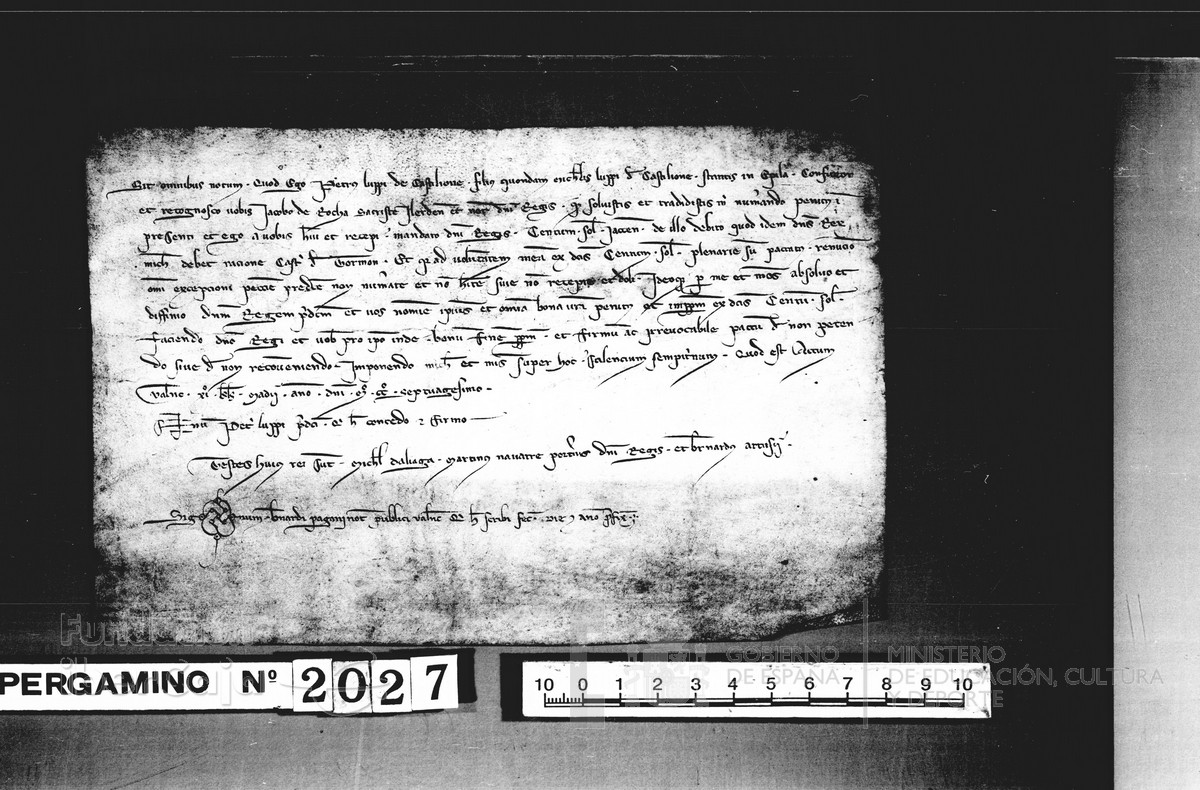 Sit omnibus notum. Quod Ego Petrus luppi de Castolione. filius quondam luppi d Castolione. stantis in Epila. Confiteor
et recognosco vobis Jacobo de Rocha Sacriste Ilerden et not dni Regis. qd solvistis et tradidistis m numerando penitus i
presenti et ego a vobis hui et recepi. mandato dni Regis. Centum. sol. Jaccen. de illo debito quod idem dns Rex
mich debet racione Castri d Gormon. Et qr ad voluntatem mea ex dcis Centum. sol. plenarie su paccatus. renucio
omi excepcioni peccie predce non numerate et no hite sive no recepte et doli. Ideoqz p me et meos absolvo et
diffinio dnum Regem pdcm et vos nomie ipius et omia bona sua penitus ut in ppm ex dcis Centu. sol.
faciendo dno Regi et vob pro ipo inde. bonu fine ppm. et firmu ac irrevocabile pactu d non peten
do sive d non recoveniendo. Imponendo mich et meis super hoc scilencium sempiternum. Quod est Actum
valnc. xi. klds. Madii. ano. dni. m. cc. septuagesimo.
Sig num Petri luppi pdci. qr h concedo z firmo
Testes huius rei sut. Michl dalaga. Martinus navarre porterius dni Regis. et bernardus
Sig num bnardi pagani not publici valnc qr h scribi fec. die z ano pfix.
PERGAMINO Nº 2027
10 0 1 2 3 4 5 6 7 8 9 10
GOBIERNO DE ESPAÑA
MINISTERIO DE EDUCACIÓN, CULTURA Y DEPORTE